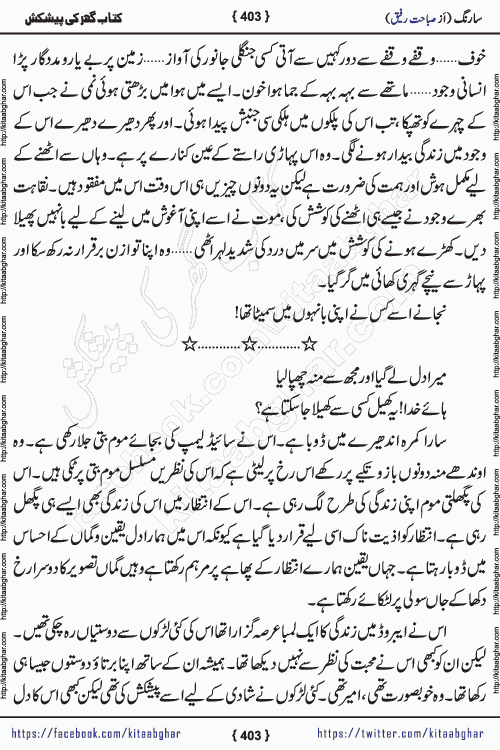 سارنگ (از صباحت رفیق)
{ 403 }
کتاب گھر کی پیشکش
خوف......وقفے وقفے سے دور کہیں سے آتی کسی جنگلی جانور کی آواز......زمین پر بے یار و مددگار پڑا
انسانی وجود...... ماتھے سے بہہ بہہ کے جما ہوا خون۔ ایسے میں ہوا میں بڑھتی ہوئی نمی نے جب اس
کے چہرے کو تھپکا، تب اس کی پلکوں میں ہلکی سی جنبش پیدا ہوئی۔ اور پھر دھیرے دھیرے اس کے
وجود میں زندگی بیدار ہونے لگی۔ وہ اس پہاڑی راستے کے عین کنارے پر ہے۔ وہاں سے اٹھنے کے
لیے مکمل ہوش اور ہمت کی ضرورت ہے لیکن یہ دونوں چیزیں ہی اس وقت اس میں مفقود ہیں۔ نقاہت
بھرے وجود نے جیسے ہی اٹھنے کی کوشش کی، موت نے اسے اپنی آغوش میں لینے کے لیے بانہیں پھیلا
دیں۔ کھڑے ہونے کی کوشش میں سر میں درد کی شدید لہر اٹھی......وہ اپنا توازن برقرار نہ رکھ سکا اور
پہاڑ سے نیچے گہری کھائی میں گر گیا۔
نجانے اسے کس نے اپنی بانہوں میں سمیٹا تھا!
☆............☆............☆
میرا دل لے گیا اور مجھ سے منہ چھپا لیا
ہائے خدا! یہ کھیل کسی سے کھیلا جا سکتا ہے؟
سارا کمرہ اندھیرے میں ڈوبا ہے۔ اس نے سائیڈ لیمپ کی بجائے موم بتی جلا رکھی ہے۔ وہ
اوندھے منہ دونوں بازو تکیے پر رکھے اس رخ پر لیٹی ہے کہ اس کی نظریں مسلسل موم بتی پر ٹکی ہیں۔ اس
کی پگھلتی موم اپنی زندگی کی طرح لگ رہی ہے۔ اس کے انتظار میں اس کی زندگی بھی ایسے ہی پگھل
رہی ہے۔ انتظار کو اذیت ناک اسی لیے قرار دیا گیا ہے کیونکہ اس میں ہمارا دل یقین و گماں کے احساس
میں ڈوبا رہتا ہے۔ جہاں یقین ہمارے انتظار کے پھاہے پر مرہم رکھتا ہے وہیں گماں تصویر کا دوسرا رخ
دکھا کے جاں سولی پر لٹکائے رکھتا ہے۔
اس نے ایبروڈ میں زندگی کا ایک لمبا عرصہ گزارا تھا اس کی کئی لڑکوں سے دوستیاں رہ چکی تھیں۔
لیکن ان کو کبھی اس نے محبت کی نظر سے نہیں دیکھا تھا۔ ہمیشہ ان کے ساتھ اپنا برتاؤ دوستوں جیسا ہی
رکھا تھا۔ وہ خوبصورت تھی، امیر تھی۔ کئی لڑکوں نے شادی کے لیے اسے پیشکش کی تھی لیکن کبھی اس کا دل
https://facebook.com/kitaabghar
{ 403 }
https://twitter.com/kitaabghar
http://kitaabghar.com
http://kitaabghar.com
http://kitaabghar.com
http://kitaabghar.com
http://kitaabghar.com
http://kitaabghar.com
http://kitaabghar.com
http://kitaabghar.com